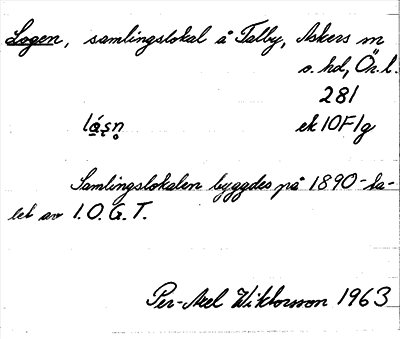 Logen, samlingslokal å Talby, Askers sn
o. hd, Ör. l.
281
lå̀sn̥ ek 10F1g
Samlingslokalen byggdes på 1890-ta-
let av I.O.G.T.
Per-Axel Wiktorsson 1963